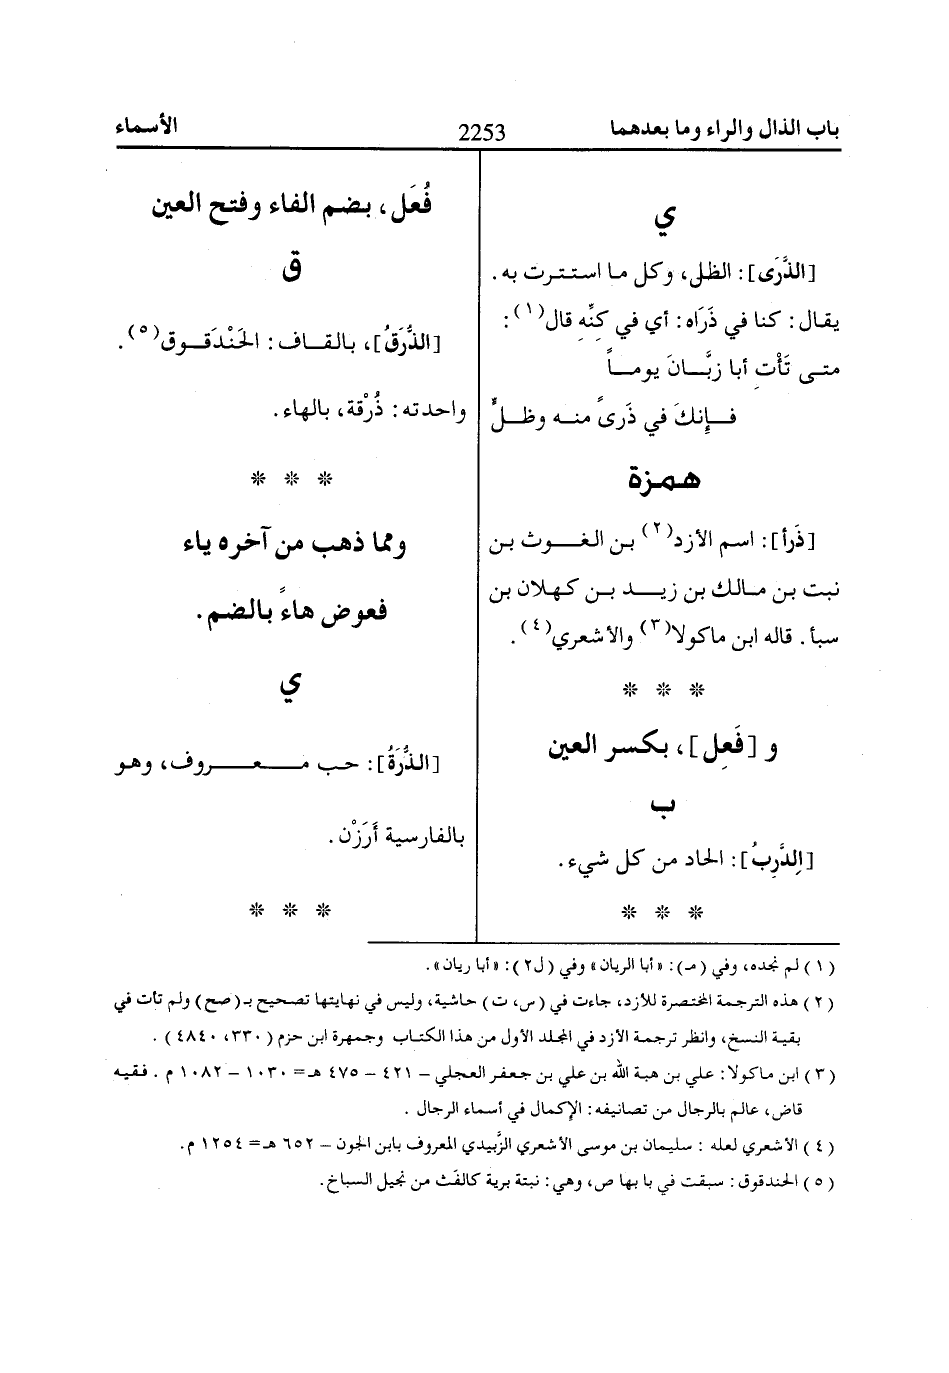 باب الذال والراء وما بعدهما 2253 الأسماء
ي
[الذَّرَى]: الظل، وكل ما استترت به.
يقال: كنا في ذَرَاه: أي في كنِّهِ قال(١):
متى تَأْتِ أبا زبَّانَ يوماً
فإنكَ في ذَرىً منه وظلٍّ
همزة
[ذَرأ]: اسم الأزد(٢) بن الغوث بن
نبت بن مالك بن زيد بن كهلان بن
سبأ. قاله ابن ماكولا(٣) والأشعري(٤).
* * *
و [فَعِل]، بكسر العين
ب
[الذَّرِبُ]: الحاد من كل شيء.
* * *
فُعَل، بضم الفاء وفتح العين
ق
[الذُّرَقُ]، بالقاف: الحَنْدَقوق(٥).
واحدته: ذُرْقة، بالهاء.
* * *
ومما ذهب من آخره ياء
فعوض هاءً بالضم.
ي
[الذُّرَةُ]: حب معروف، وهو
بالفارسية أَرَزْن.
* * *
(١) لم نجده، وفي (مـ): «أبا الريان» وفي (ل٢): «أبا ريان».
(٢) هذه الترجمة المختصرة للأزد، جاءت في (س، ت) حاشية، وليس في نهايتها تصحيح بـ(صح) ولم تأت في
بقية النسخ، وانظر ترجمة الأزد في المجلد الأول من هذا الكتاب وجمهرة ابن حزم (٣٣٠، ٤٨٤٠).
(٣) ابن ماكولا: علي بن هبة الله بن علي بن جعفر العجلي – ٤٢١ – ٤٧٥ هـ= ١٠٣٠ – ١٠٨٢ م. فقيه
قاض، عالم بالرجال من تصانيفه: الإكمال في أسماء الرجال .
(٤) الأشعري لعله : سليمان بن موسى الأشعري الزَّبيدي المعروف بابن الجون – ٦٥٢ هـ= ١٢٥٤ م.
(٥) الحندقوق: سبقت في با بها ص، وهي: نبتة برية كالفَث من نجيل السباخ.